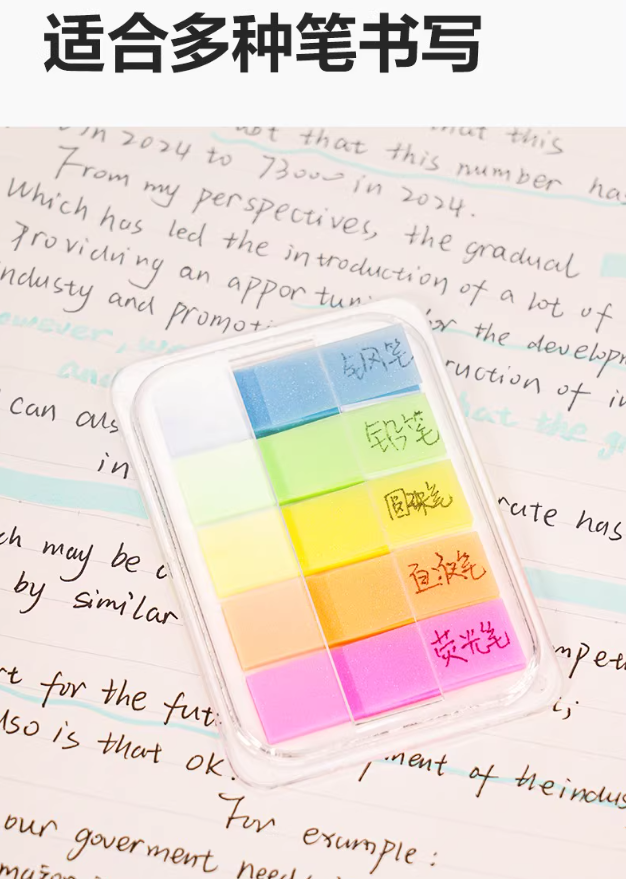 适合多种笔书写
in 2024 to 7300 in 2024.
not that this number has
that this
From my perspectives, the gradual
Which has led the introduction of a lot of
Providing an appor tuni for the develop
industy and promoti ruction of in
owever, we
can als hat the g
in
rate has
ch may be
by similar
mpet
rt for the fut
lso is that ok. pment of theindus
For example:
our goverment need
钢笔
铅笔
圆珠笔
直液笔
荧光笔